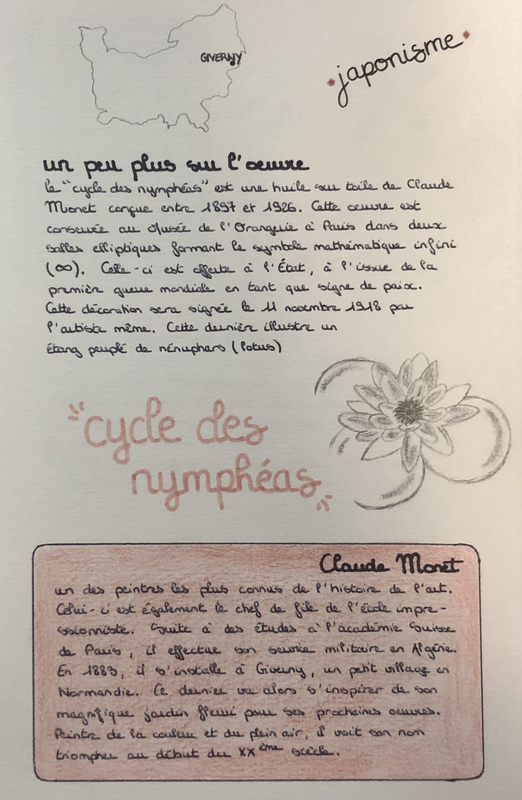 GIVERNY
japonisme
un peu plus sur l'oeuvre
le "cycle des nymphéas" est une huile sur toile de Claude
Monet conçue entre 1897 et 1926. Cette oeuvre est
conservée au Musée de l'Orangerie à Paris dans deux
salles elliptiques formant le symbole mathématique infini
(∞). Celle-ci est offerte à l'État, à l'issue de la
première guerre mondiale en tant que signe de paix.
Cette décoration sera signée le 11 novembre 1918 par
l'artiste même. Cette dernière illustre un
étang peuplé de nénuphars (lotus)
cycle des
nymphéas
Claude Monet
un des peintres les plus connus de l'histoire de l'art.
Celui-ci est également le chef de file de l'école impre-
ssionniste. Suite à des études à l'académie Suisse
de Paris, il effectue son service militaire en Algérie.
En 1883, il s'installe à Giverny, un petit village en
Normandie. Ce dernier va alors s'inspirer de son
magnifique jardin fleuri pour ses prochaines oeuvres.
Peintre de la couleur et du plein air, il voit son nom
triompher au début du XXème siècle.